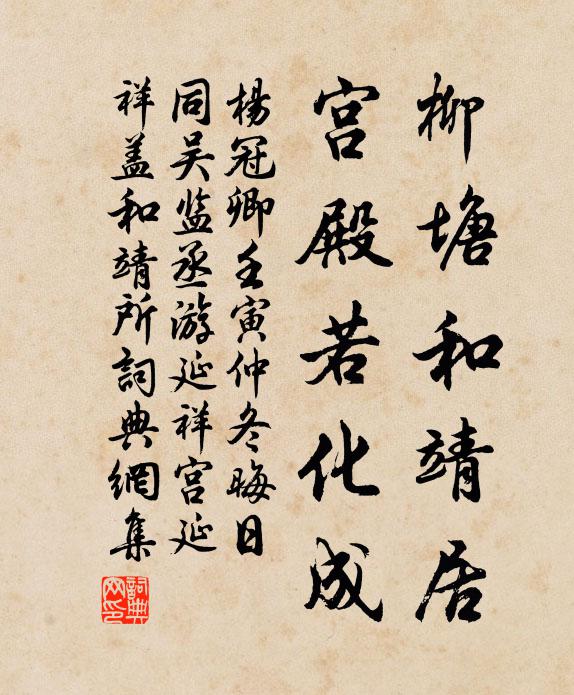 柳塘和靖居
宫殿若化成
楊冠卿壬寅仲冬晦日
同吴监丞游延祥宫延
祥盖和靖所詞典網集
詞典网印